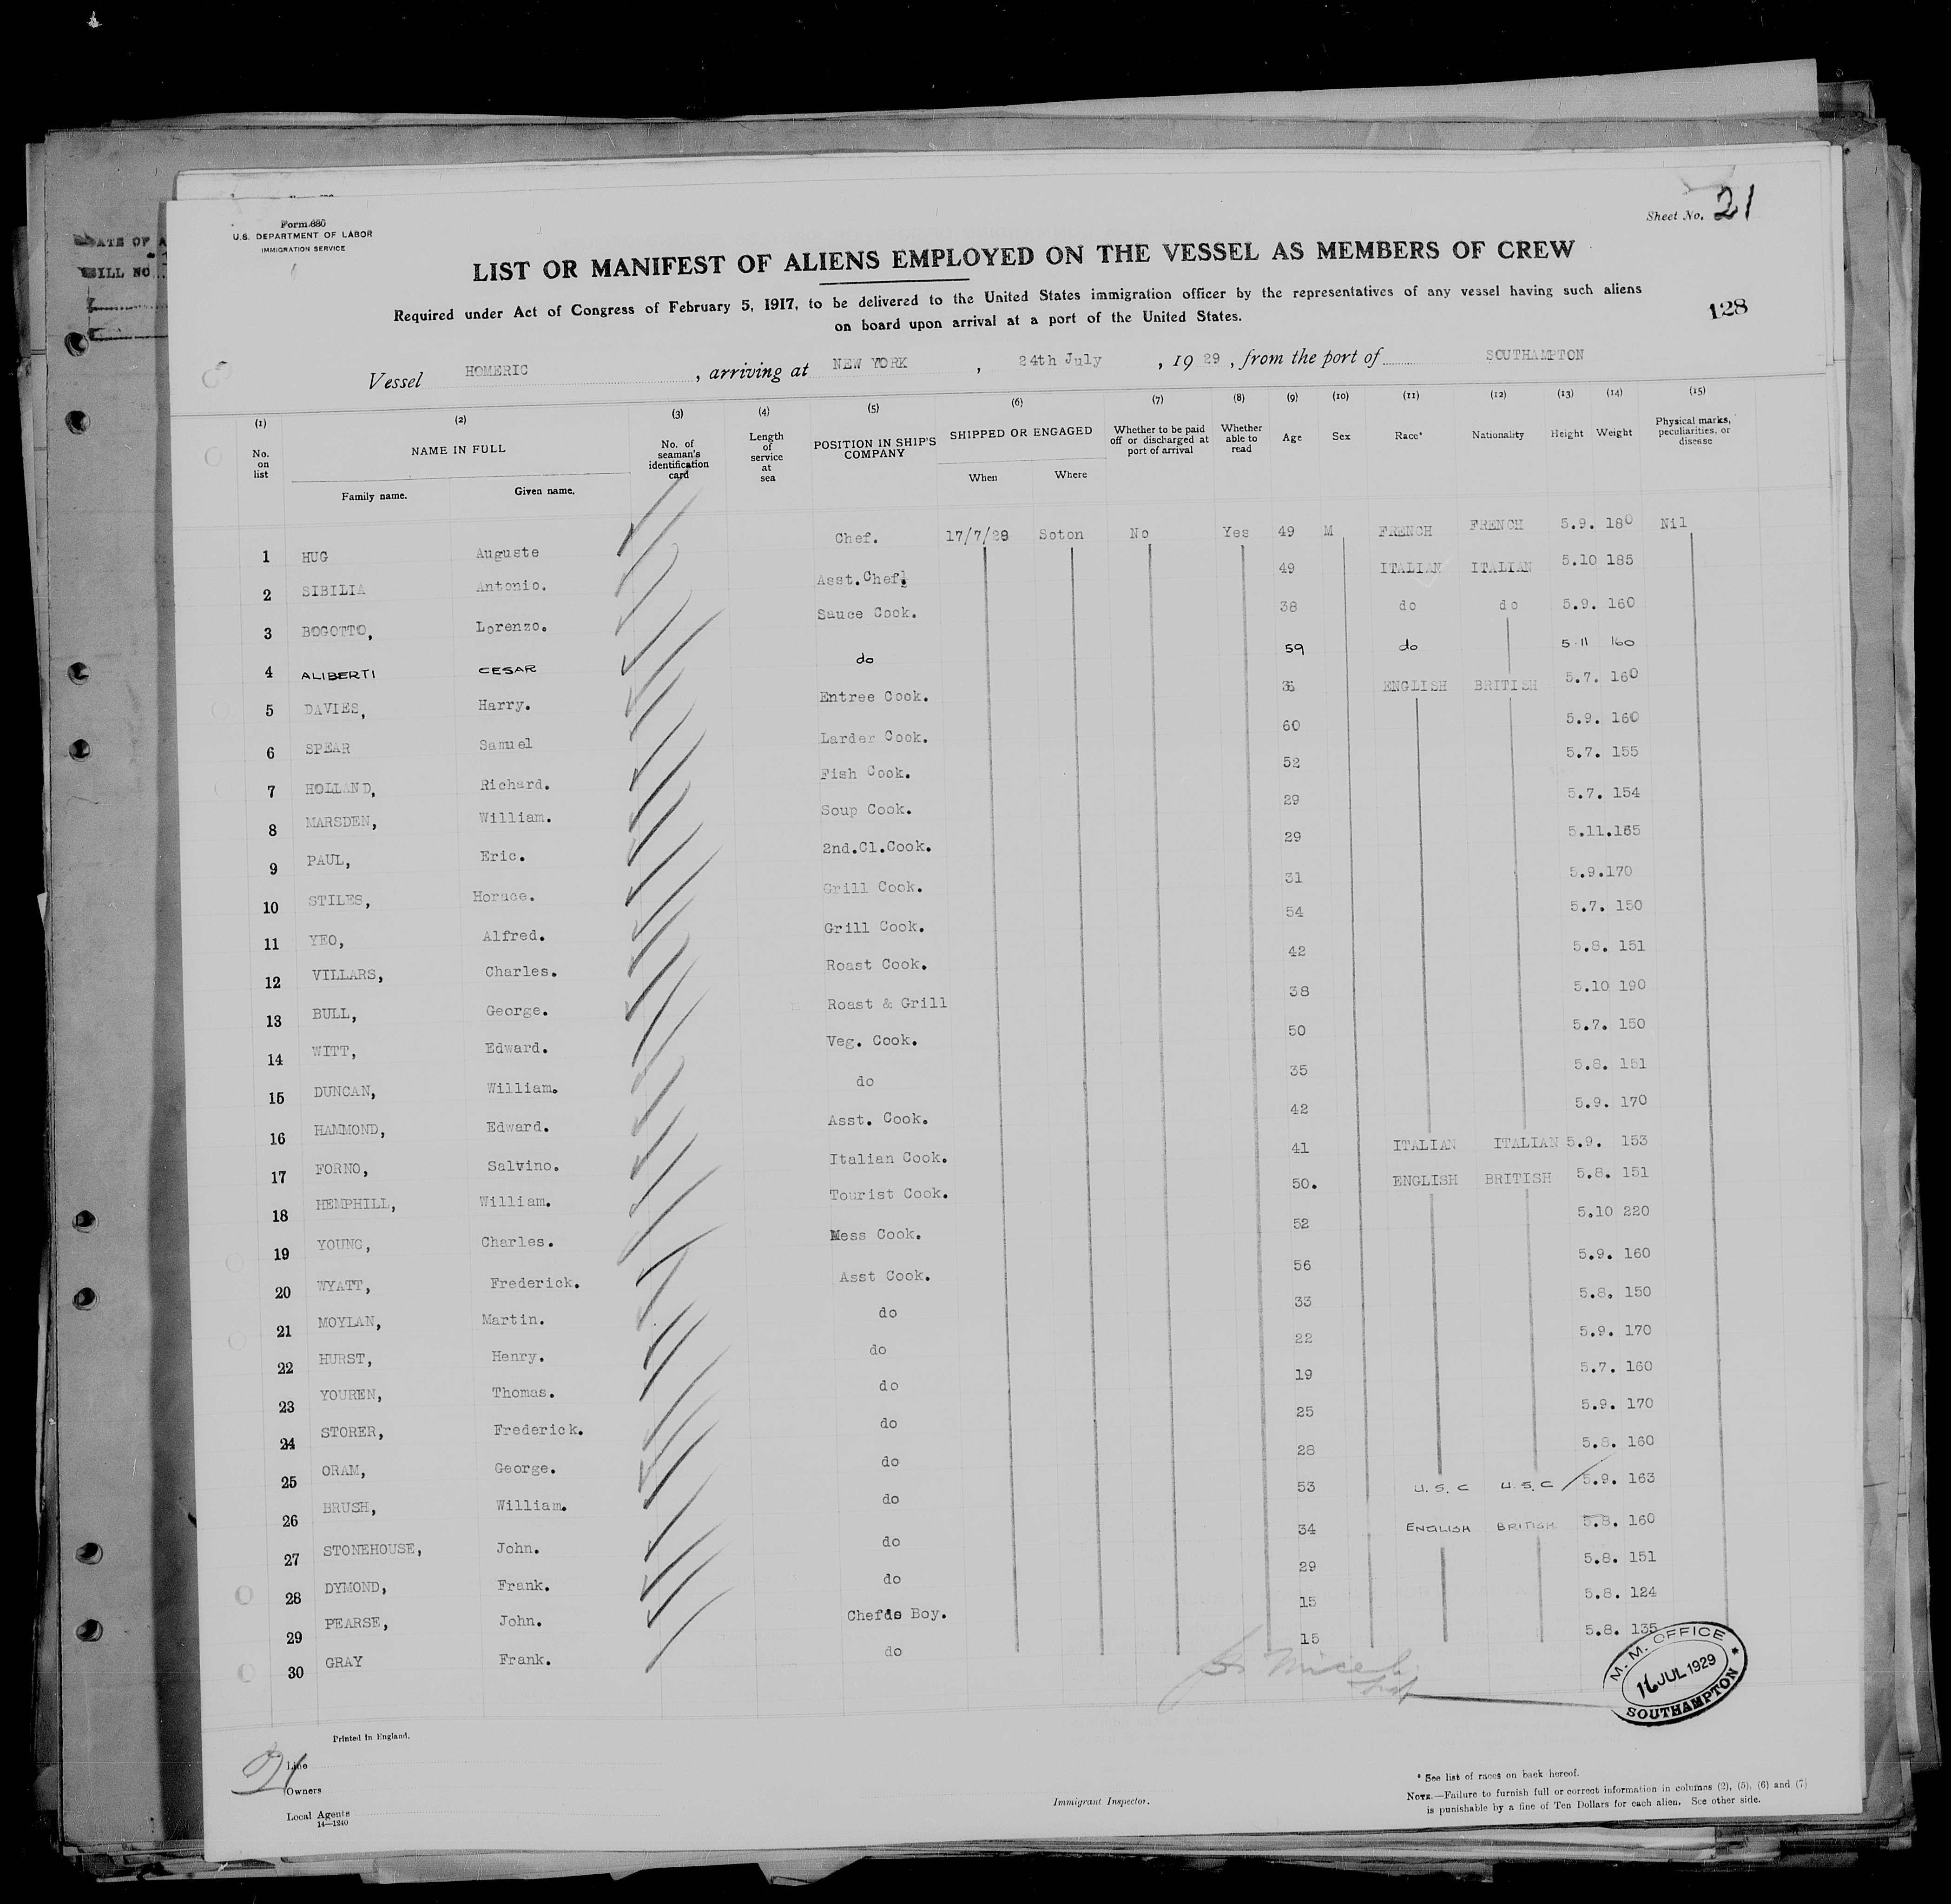 Form 680
U.S. DEPARTMENT OF LABOR
IMMIGRATION SERVICE
Sheet No. 21
LIST OR MANIFEST OF ALIENS EMPLOYED ON THE VESSEL AS MEMBERS OF CREW
Required under Act of Congress of February 5, 1917, to be delivered to the United States immigration officer by the representatives of any vessel having such aliens
on board upon arrival at a port of the United States.
128
Vessel HOMERIC, arriving at NEW YORK, 24th July, 1929, from the port of SOUTHAMPTON
(1) (2) (3) (4) (5) (6) (7) (8) (9) (10) (11) (12) (13) (14) (15)
No. on list NAME IN FULL Family name. Given name. No. of seaman's identification card Length of service at sea POSITION IN SHIP'S COMPANY SHIPPED OR ENGAGED When Where Whether to be paid off or discharged at port of arrival Whether able to read Age Sex Race* Nationality Height Weight Physical marks, peculiarities, or disease
1 HUG Auguste Chef. 17/7/29 Soton No Yes 49 M FRENCH FRENCH 5.9. 180 Nil
2 SIBILIA Antonio. Asst.Chef. 49 ITALIAN ITALIAN 5.10 185
3 BOGOTTO, Lorenzo. Sauce Cook. 38 do do 5.9. 160
4 ALIBERTI CESAR do 59 do 5 11 160
5 DAVIES, Harry. Entree Cook. ENGLISH BRITISH 5.7. 160
6 SPEAR Samuel Larder Cook. 60 5.9. 160
7 HOLLAND, Richard. Fish Cook. 52 5.7. 155
8 MARSDEN, William. Soup Cook. 29 5.7. 154
9 PAUL, Eric. 2nd.Cl.Cook. 29 5.11.165
10 STILES, Horace. Grill Cook. 31 5.9.170
11 YEO, Alfred. Grill Cook. 54 5.7. 150
12 VILLARS, Charles. Roast Cook. 42 5.8. 151
13 BULL, George. Roast & Grill 38 5.10 190
14 WITT, Edward. Veg. Cook. 50 5.7. 150
15 DUNCAN, William. do 35 5.8. 151
16 HAMMOND, Edward. Asst. Cook. 42 5.9. 170
17 FORNO, Salvino. Italian Cook. 41 ITALIAN ITALIAN 5.9. 153
18 HEMPHILL, William. Tourist Cook. 50. ENGLISH BRITISH 5.8. 151
19 YOUNG, Charles. Mess Cook. 52 5.10 220
20 WYATT, Frederick. Asst Cook. 56 5.9. 160
21 MOYLAN, Martin. do 33 5.8. 150
22 HURST, Henry. do 22 5.9. 170
23 YOUREN, Thomas. do 19 5.7. 160
24 STORER, Frederick. do 25 5.9. 170
25 ORAM, George. do 28 5.8. 160
26 BRUSH, William. do 53 U.S.C U.S.C 5.9. 163
27 STONEHOUSE, John. do 34 ENGLISH BRITISH 5.8. 160
28 DYMOND, Frank. do 29 5.8. 151
29 PEARSE, John. Chefds Boy. 15 5.8. 124
30 GRAY Frank. do 15 5.8. 135
M. M. OFFICE
16 JUL 1929
SOUTHAMPTON
Printed in England.
21
Line
Owners
Local Agents
14—1240
Immigrant Inspector.
* See list of races on back hereof.
NOTE.—Failure to furnish full or correct information in columns (2), (5), (6) and (7)
is punishable by a fine of Ten Dollars for each alien. See other side.